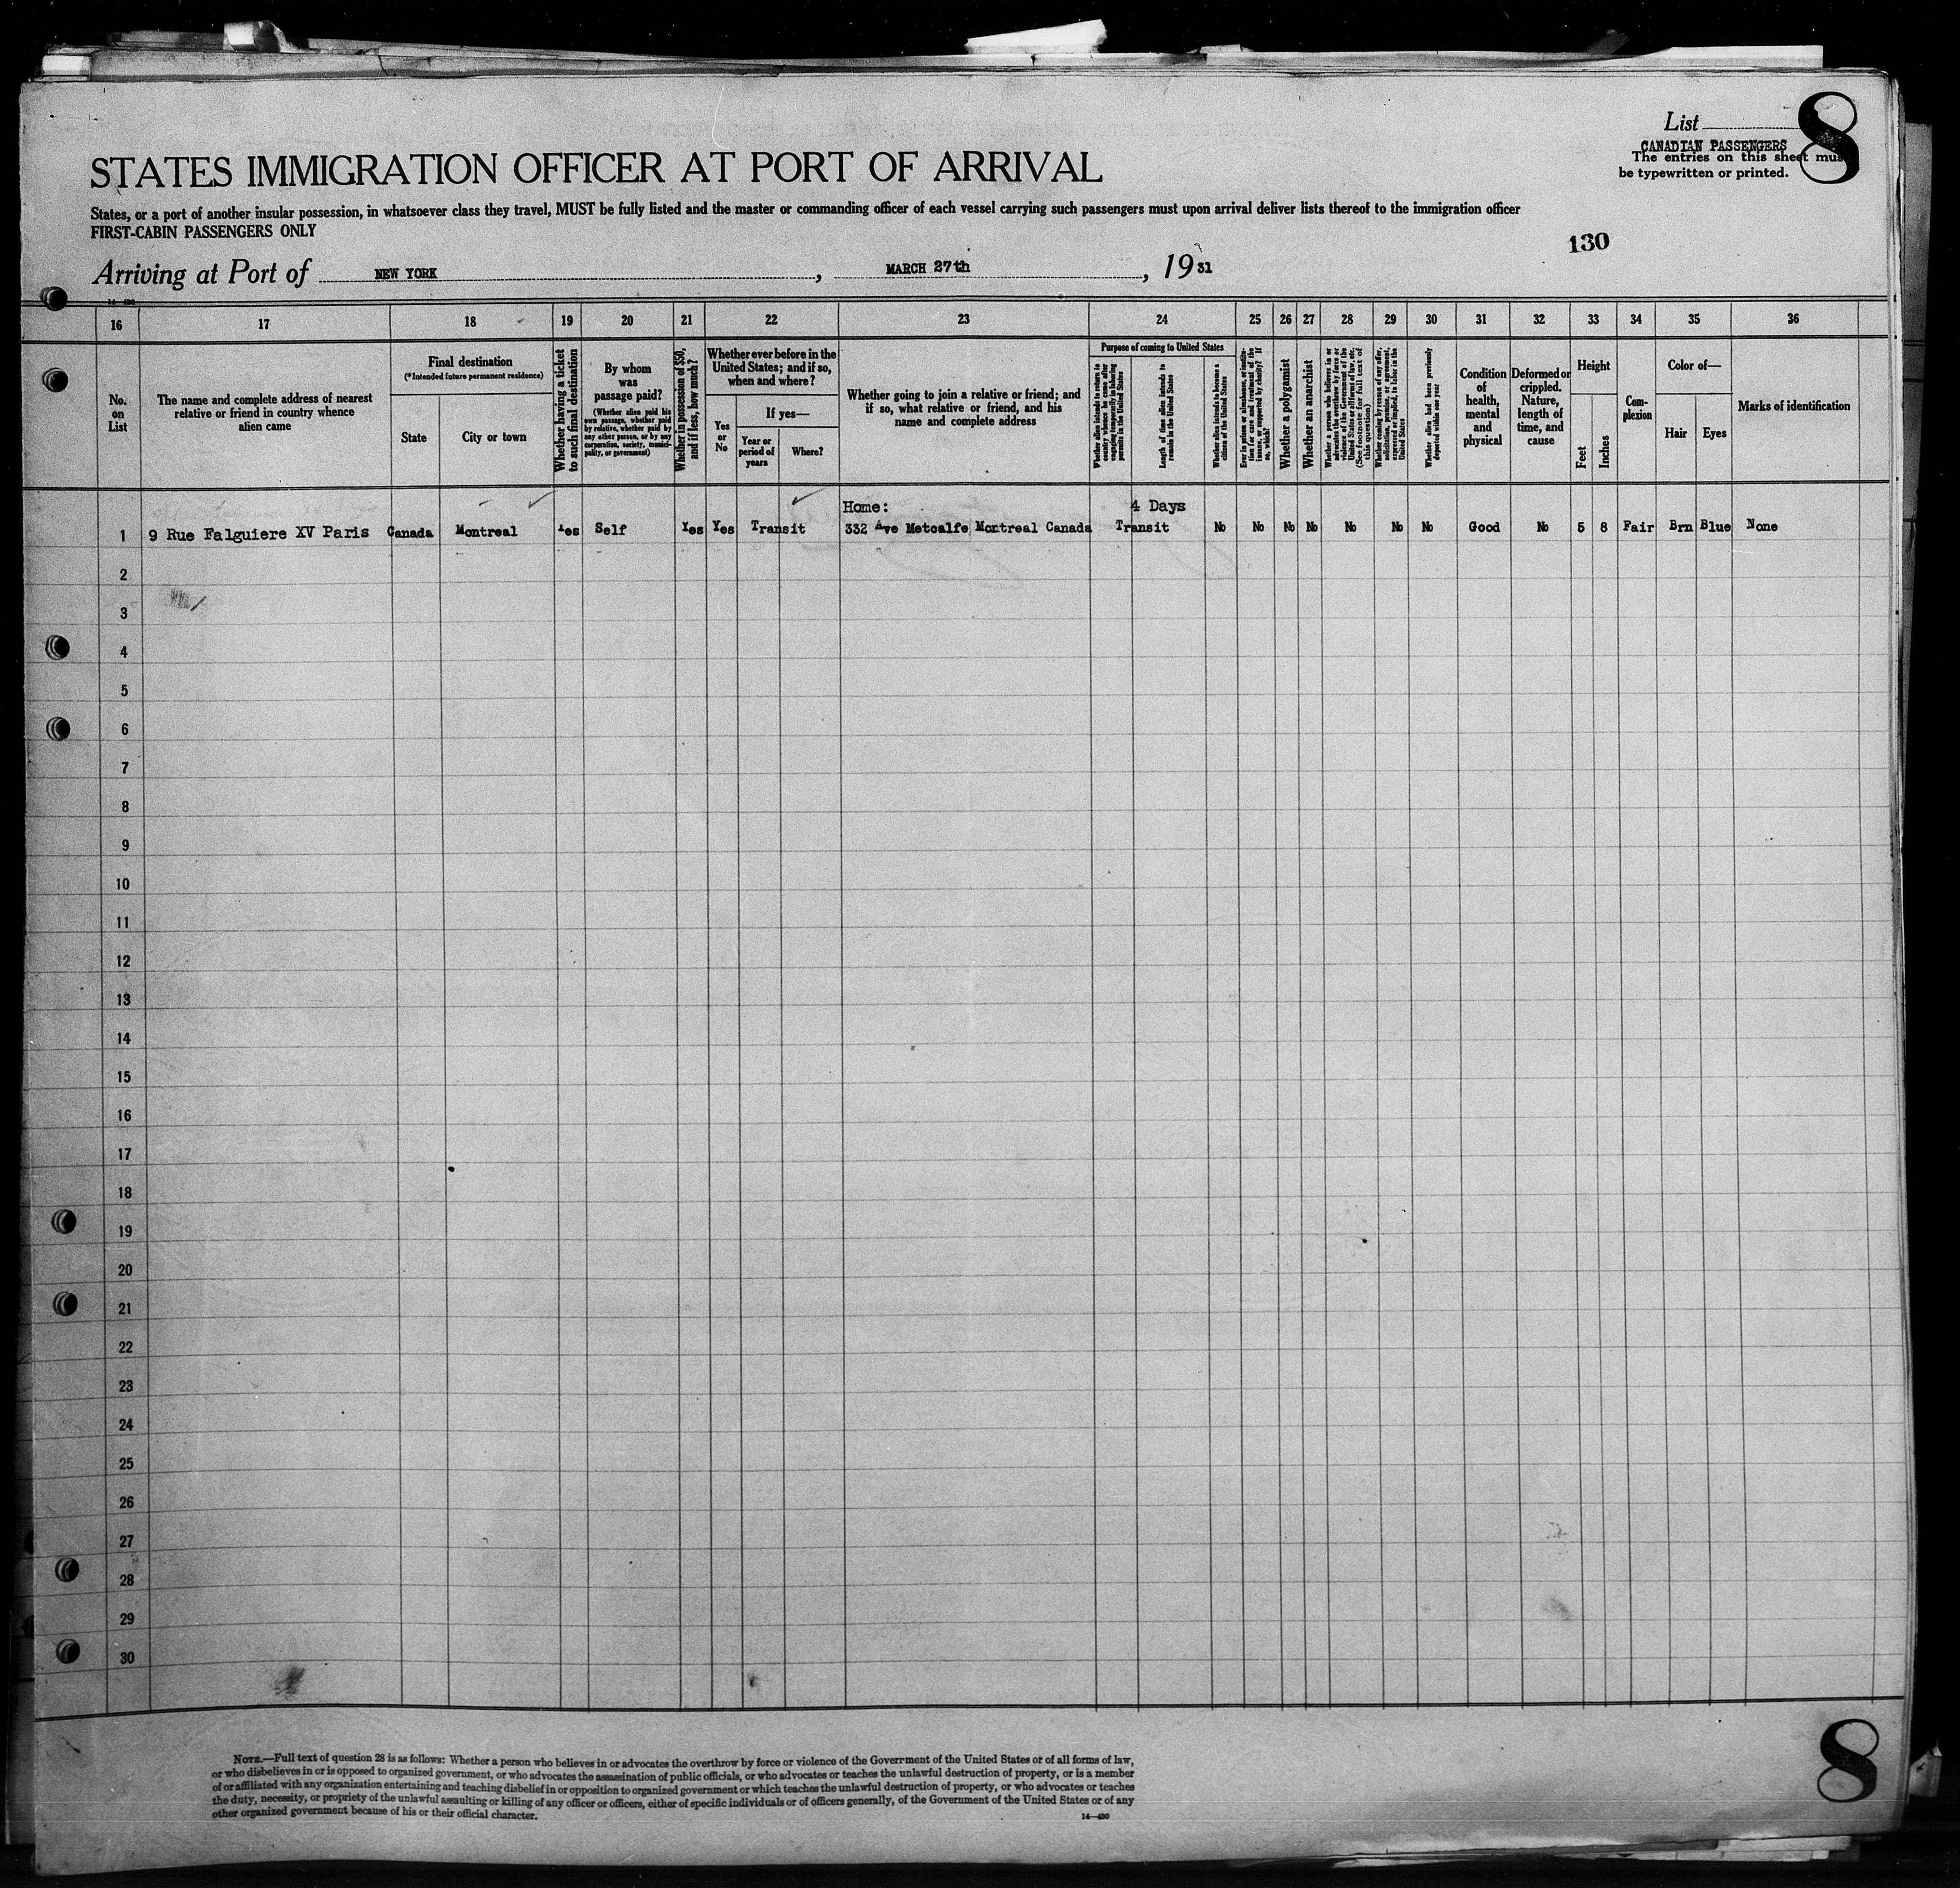 List 8
CANADIAN PASSENGERS
The entries on this sheet mus
be typewritten or printed.
STATES IMMIGRATION OFFICER AT PORT OF ARRIVAL
States, or a port of another insular possession, in whatsoever class they travel, MUST be fully listed and the master or commanding officer of each vessel carrying such passengers must upon arrival deliver lists thereof to the immigration officer
FIRST-CABIN PASSENGERS ONLY
130
Arriving at Port of NEW YORK, MARCH 27th, 1931
14—430
16 17 18 19 20 21 22 23 24 25 26 27 28 29 30 31 32 33 34 35 36
No. on List
The name and complete address of nearest relative or friend in country whence alien came
Final destination
(*Intended future permanent residence)
State
City or town
Whether having a ticket to such final destination
By whom was passage paid?
(Whether alien paid his own passage, whether paid by relative, whether paid by any other person, or by any corporation, society, municipality, or government)
Whether in possession of $50, and if less, how much?
Whether ever before in the United States; and if so, when and where?
Yes or No
If yes—
Year or period of years
Where?
Whether going to join a relative or friend; and if so, what relative or friend, and his name and complete address
Purpose of coming to United States
Whether alien intends to return to country whence he came after engaging temporarily in laboring pursuits in the United States
Length of time alien intends to remain in the United States
Whether alien intends to become a citizen of the United States
Ever in prison or almshouse, or institution for care and treatment of the insane, or supported by charity? If so, which?
Whether a polygamist
Whether an anarchist
Whether a person who believes in or advocates the overthrow by force or violence of the Government of the United States or all forms of law, etc. (See footnote for full text of this question)
Whether coming by reason of any offer, solicitation, promise, or agreement, expressed or implied, to labor in the United States
Whether alien had been previously deported within one year
Condition of health, mental and physical
Deformed or crippled. Nature, length of time, and cause
Height
Feet
Inches
Complexion
Color of—
Hair
Eyes
Marks of identification
Home: 4 Days
1 9 Rue Falguiere XV Paris Canada Montreal Yes Self Yes Yes Transit 332 Ave Metcalfe Montreal Canada Transit No No No No No No No Good No 5 8 Fair Brn Blue None
2
3
4
5
6
7
8
9
10
11
12
13
14
15
16
17
18
19
20
21
22
23
24
25
26
27
28
29
30
NOTE.—Full text of question 28 is as follows: Whether a person who believes in or advocates the overthrow by force or violence of the Government of the United States or of all forms of law,
or who disbelieves in or is opposed to organized government, or who advocates the assassination of public officials, or who advocates or teaches the unlawful destruction of property, or is a member
of or affiliated with any organization entertaining and teaching disbelief in or opposition to organized government or which teaches the unlawful destruction of property, or who advocates or teaches
the duty, necessity, or propriety of the unlawful assaulting or killing of any officer or officers, either of specific individuals or of officers generally, of the Government of the United States or of any
other organized government because of his or their official character.
14—430
8